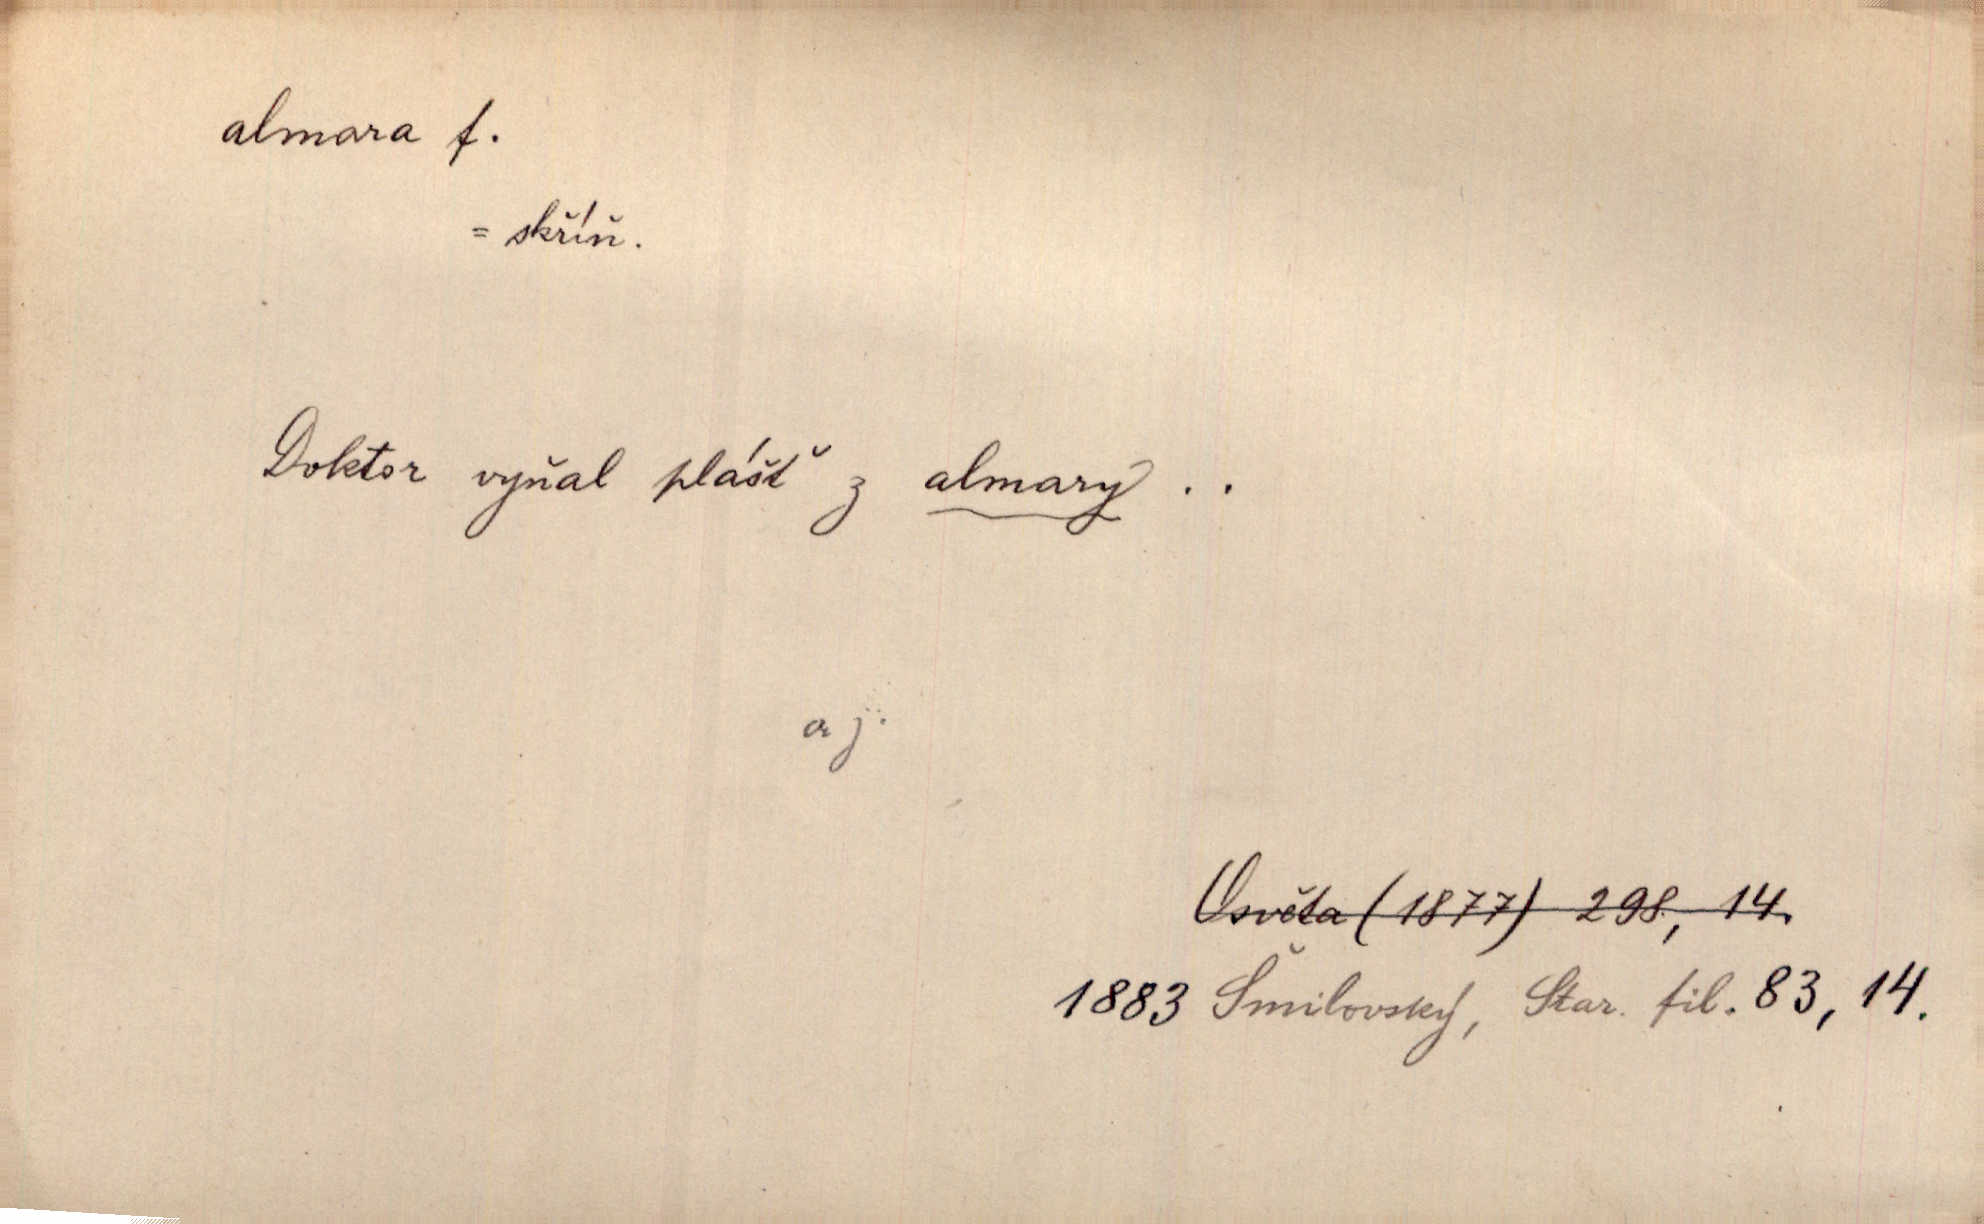 almara f.
= skříň.
Doktor vyňal plášť z almary . .
a j.
Osvěta (1877) 298, 14.
1883 Šmilovský, Star. fil. 83, 14.